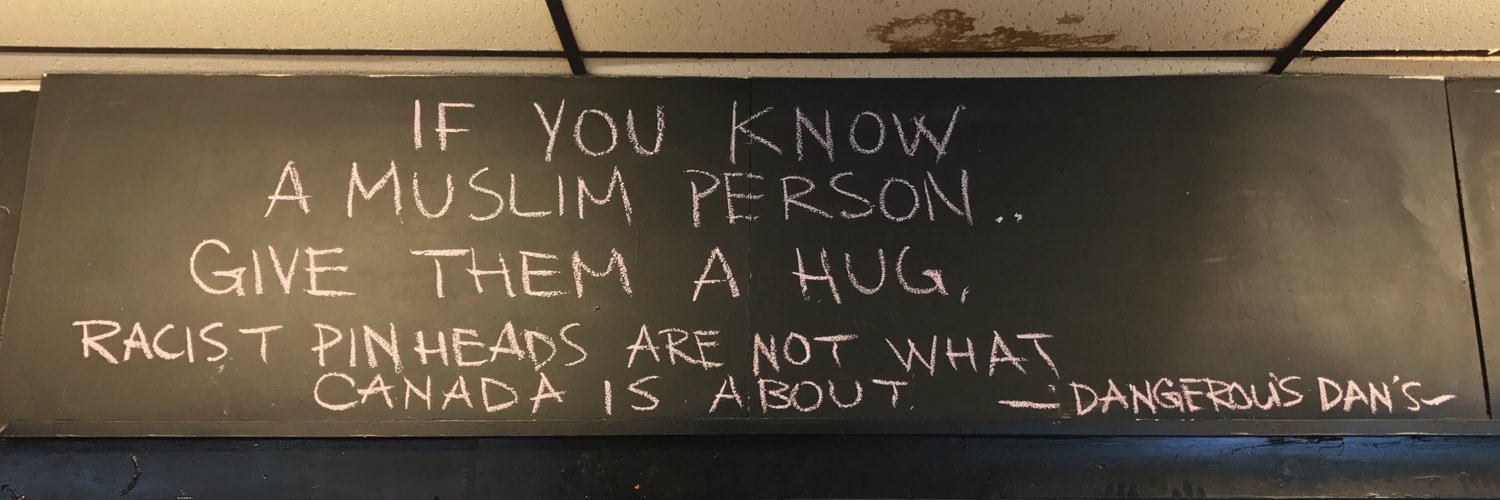 IF YOU KNOW
A MUSLIM PERSON..
GIVE THEM A HUG,
RACIST PINHEADS ARE NOT WHAT
CANADA IS ABOUT —DANGEROUS DAN'S—